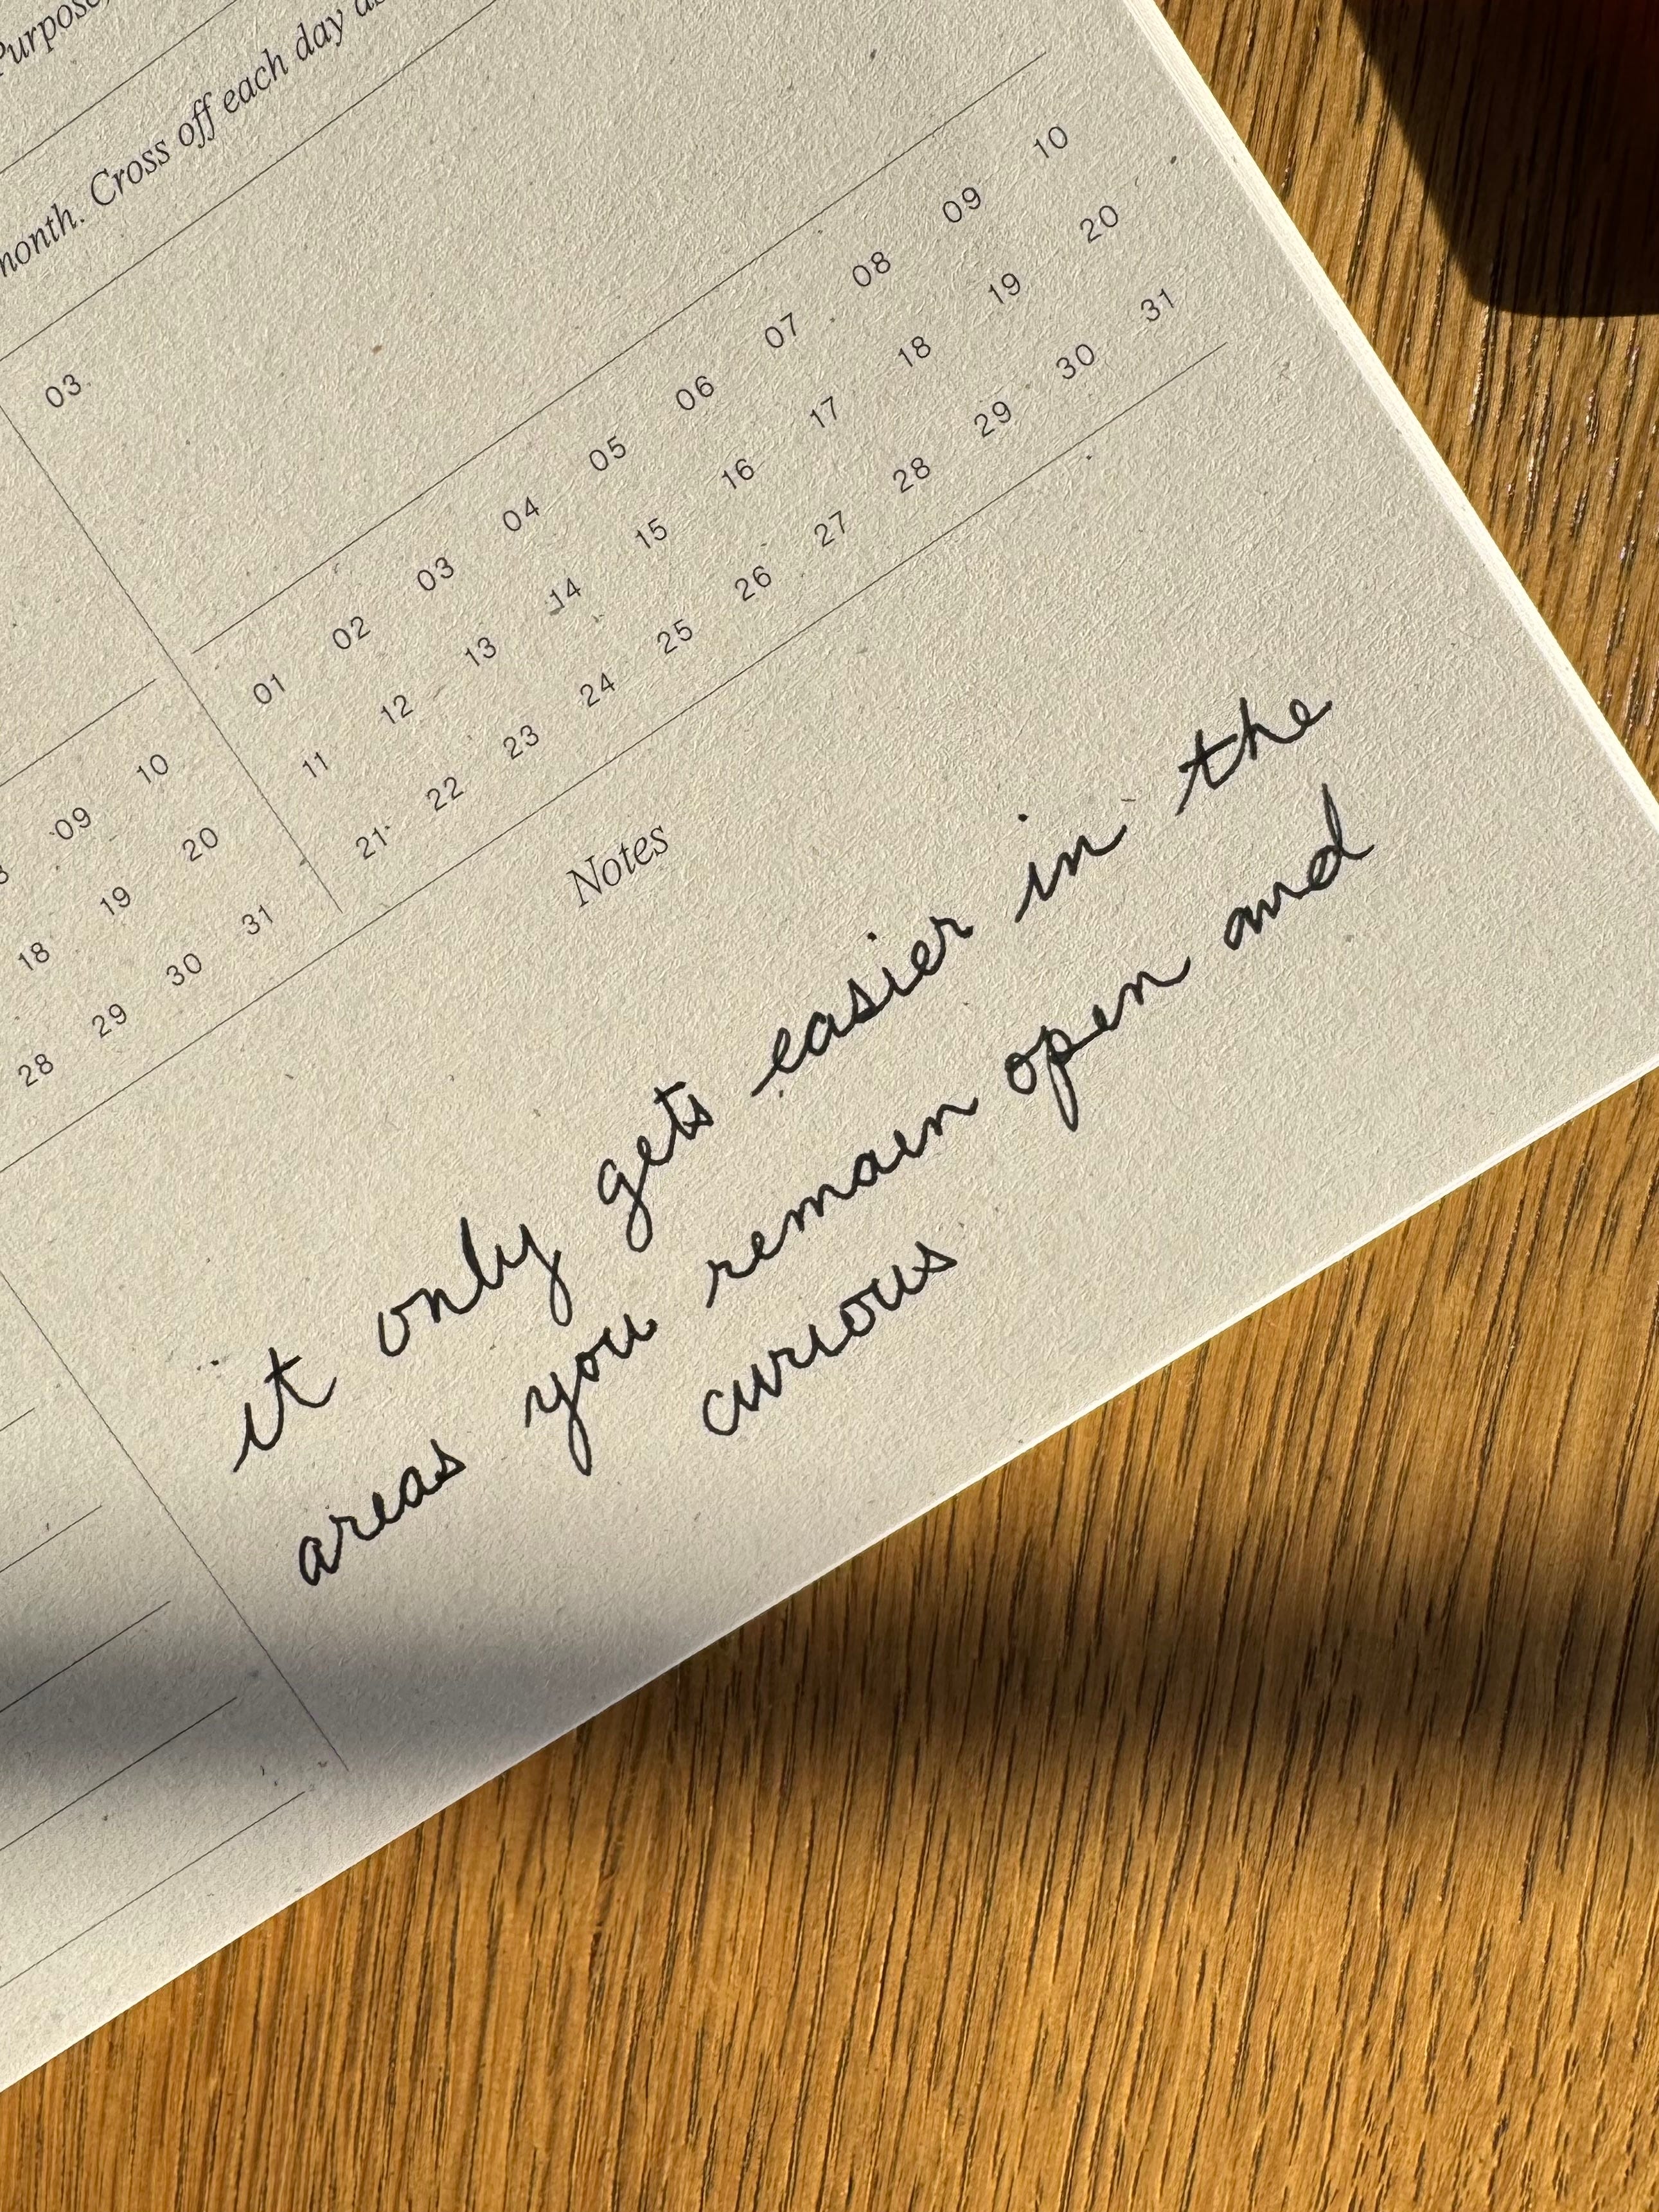 Purpose,
month. Cross off each day as
03
01 02 03 04 05 06 07 08 09 10
11 12 13 14 15 16 17 18 19 20
21 22 23 24 25 26 27 28 29 30 31
09 10
18 19 20
28 29 30 31
Notes
it only gets easier in the
areas you remain open and
curious